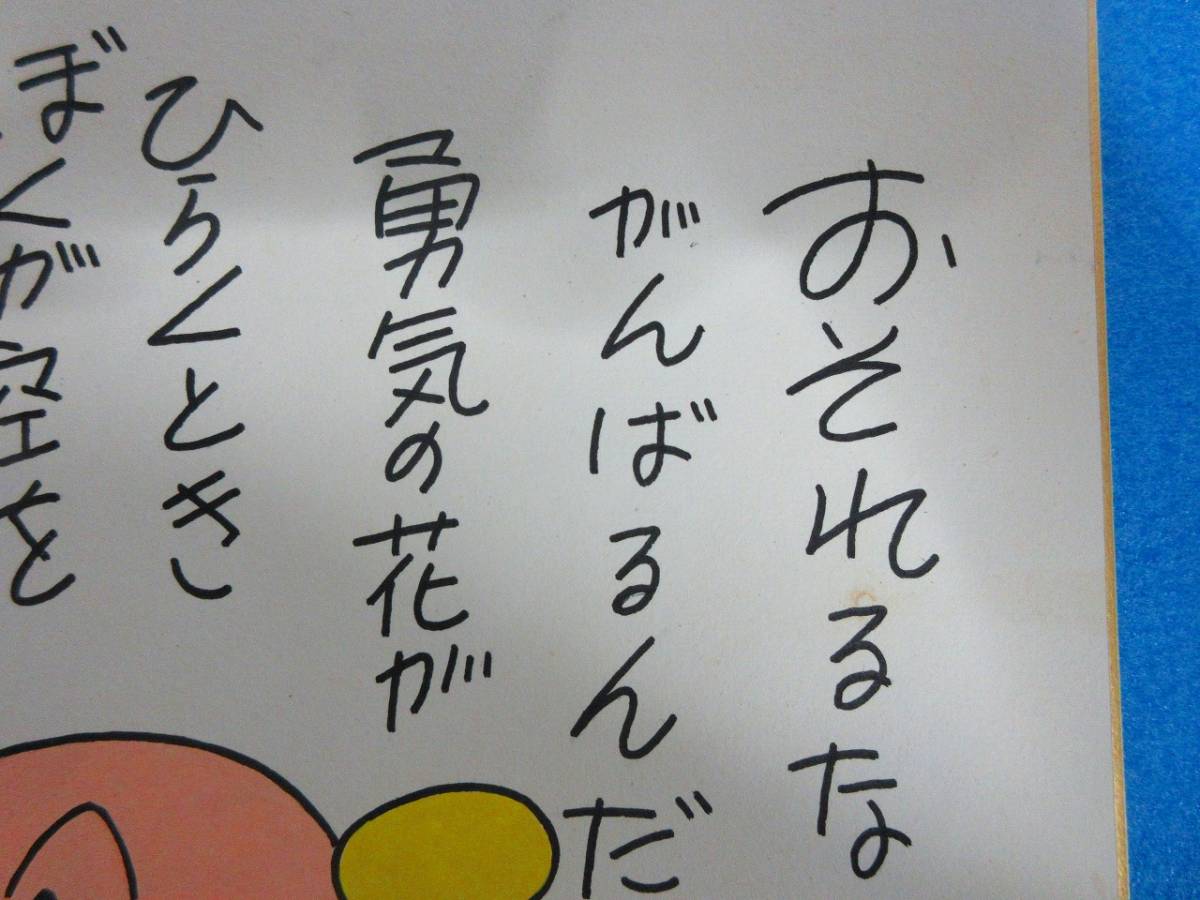 おそれるな
がんばるんだ
勇気の花が
ひらくとき
ぼくが空を